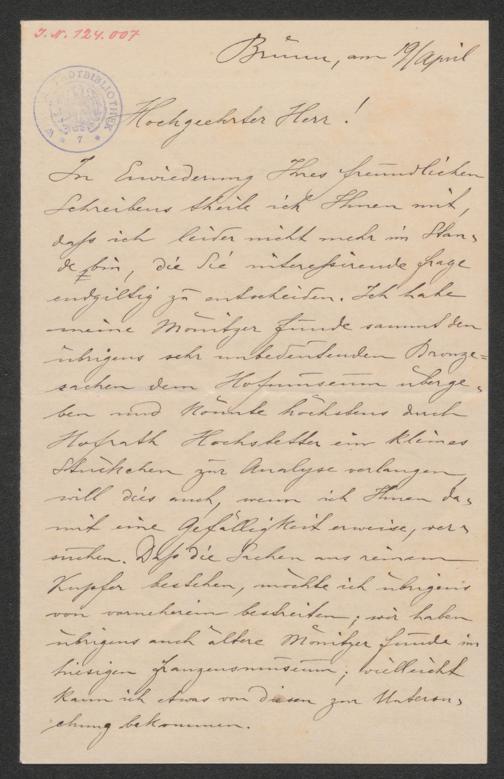 J. N. 124.007
Brünn, am 19/April
STADTBIBLIOTHEK
7
Hochgeehrter Herr!
In Erwiederung Ihres freundlichen
Schreibens theile ich Ihnen mit,
daß ich leider nicht mehr im Stan-
de bin, die Sie interessirende Frage
endgiltig zu entscheiden. Ich habe
meine Mönitzer Funde sammt den
übrigens sehr unbedeutenden Bronze=
sachen dem Hofmuseum überge-
ben und könnte höchstens durch
Hofrath Hochstetter ein kleines
Stückchen zur Analyse verlangen,
will dies auch, wenn ich Ihnen da-
mit eine Gefälligkeit erweise, ver-
suchen. Daß die Sachen aus reinem
Kupfer bestehen, möchte ich übrigens
von vorneherein bestreiten; wir haben
übrigens auch ältere Mönitzer Funde im
hiesigen Franzensmuseum; vielleicht
kann ich etwas von diesen zur Untersu-
chung bekommen.